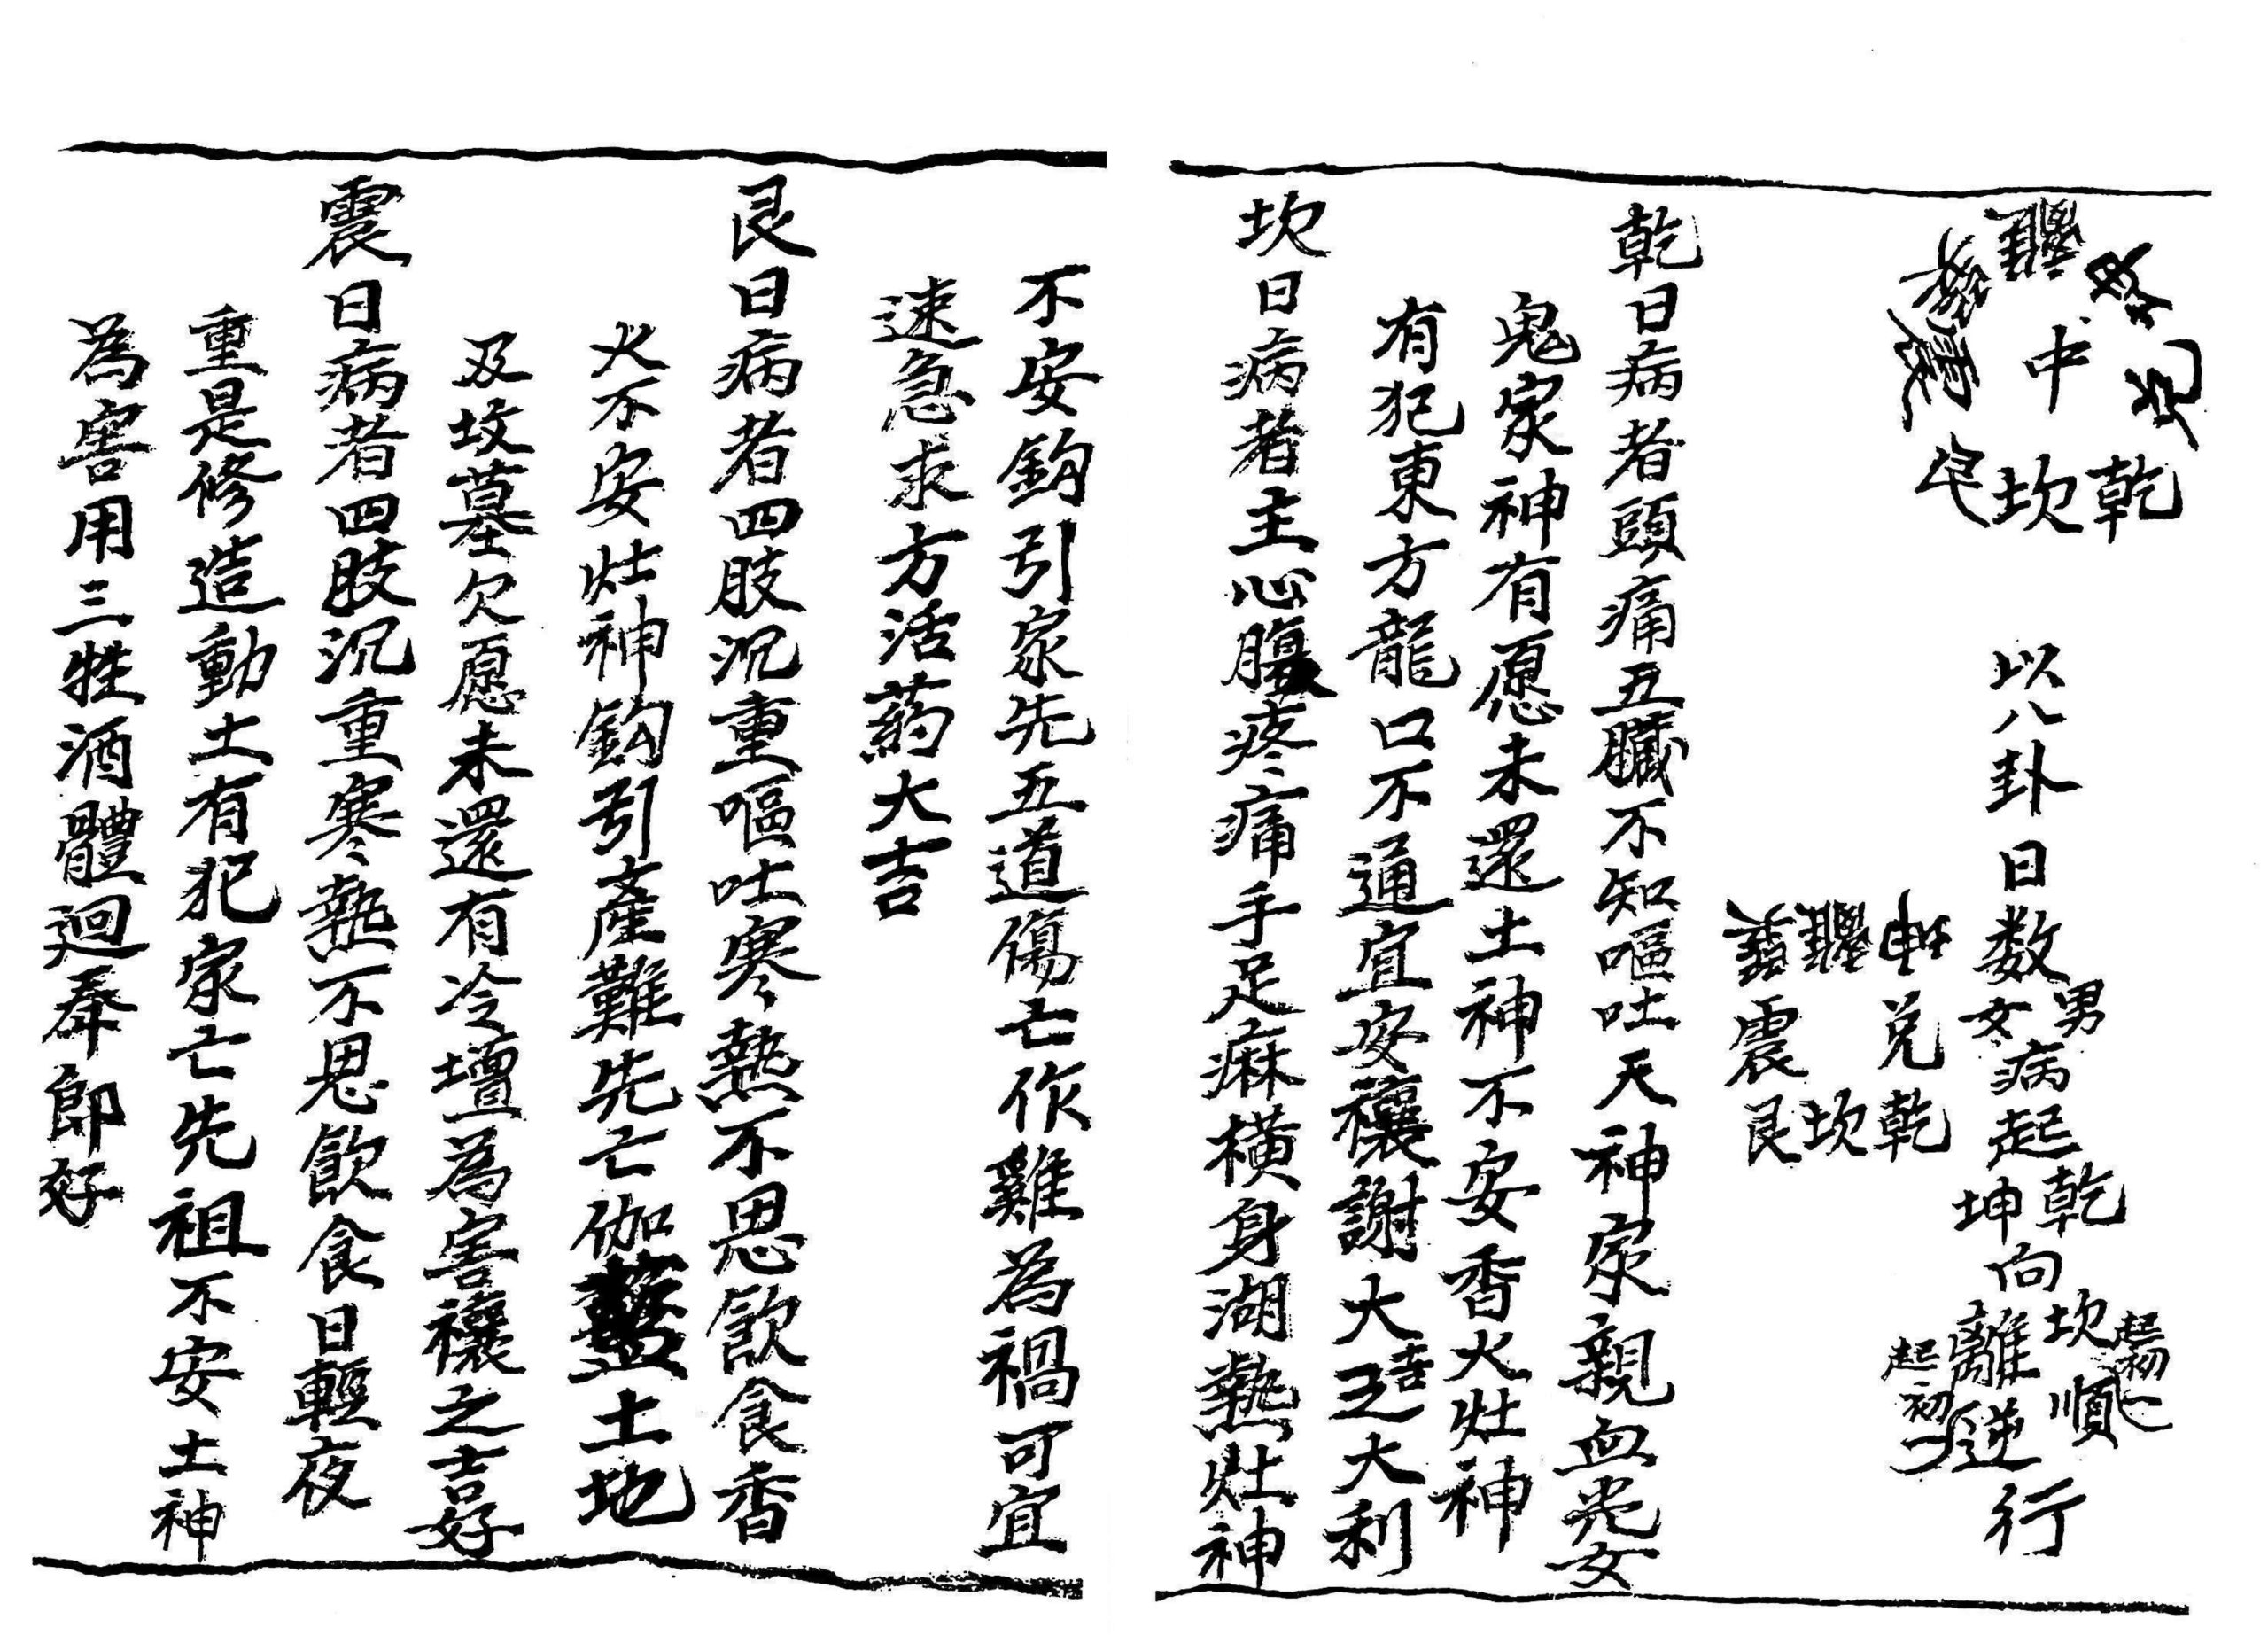 中
乾
坎
以八卦日数男女病起乾坤向坎離順逆行
起初一
起初一
兑乾
坎
震艮
乾日病者頭痛五臟不知嘔吐天神家親血光女
鬼家神有愿未還土神不安香火灶神
有犯東方龍口不通宜安禳謝大吉大利
坎日病者主心腹疼痛手足麻橫身湖熱灶神
不安鈎引家先五道傷亡作難為禍可宜
速急求方活药大吉
艮日病者四肢沉重嘔吐寒熱不思飲食香
火不安灶神鈎引產難先亡伽土地
及坟墓欠愿未還有冷壇為害禳之吉好
震日病者四肢沉重寒熱不思飲食日輕夜
重是修造動土有犯家亡先祖不安土神
為害用三牲酒體迴奉即好